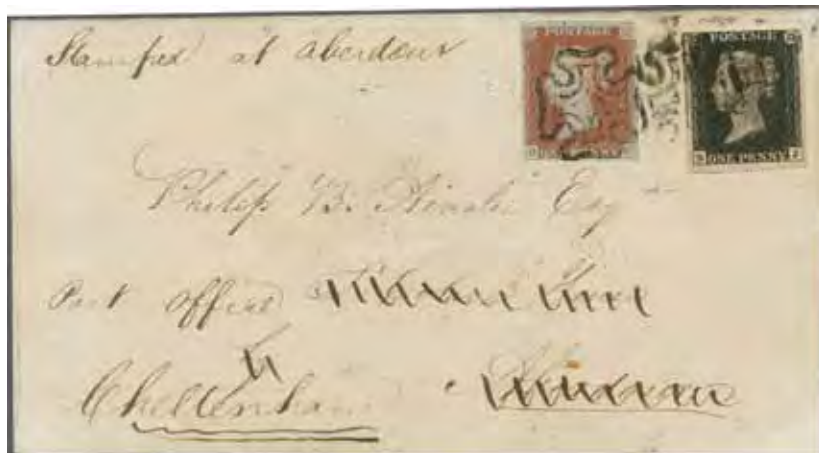 Stamped at Aberdour
POSTAGE
ONE PENNY
POSTAGE
ONE PENNY
Philip B. Ainslie Esq
Post Office
Cheltenham